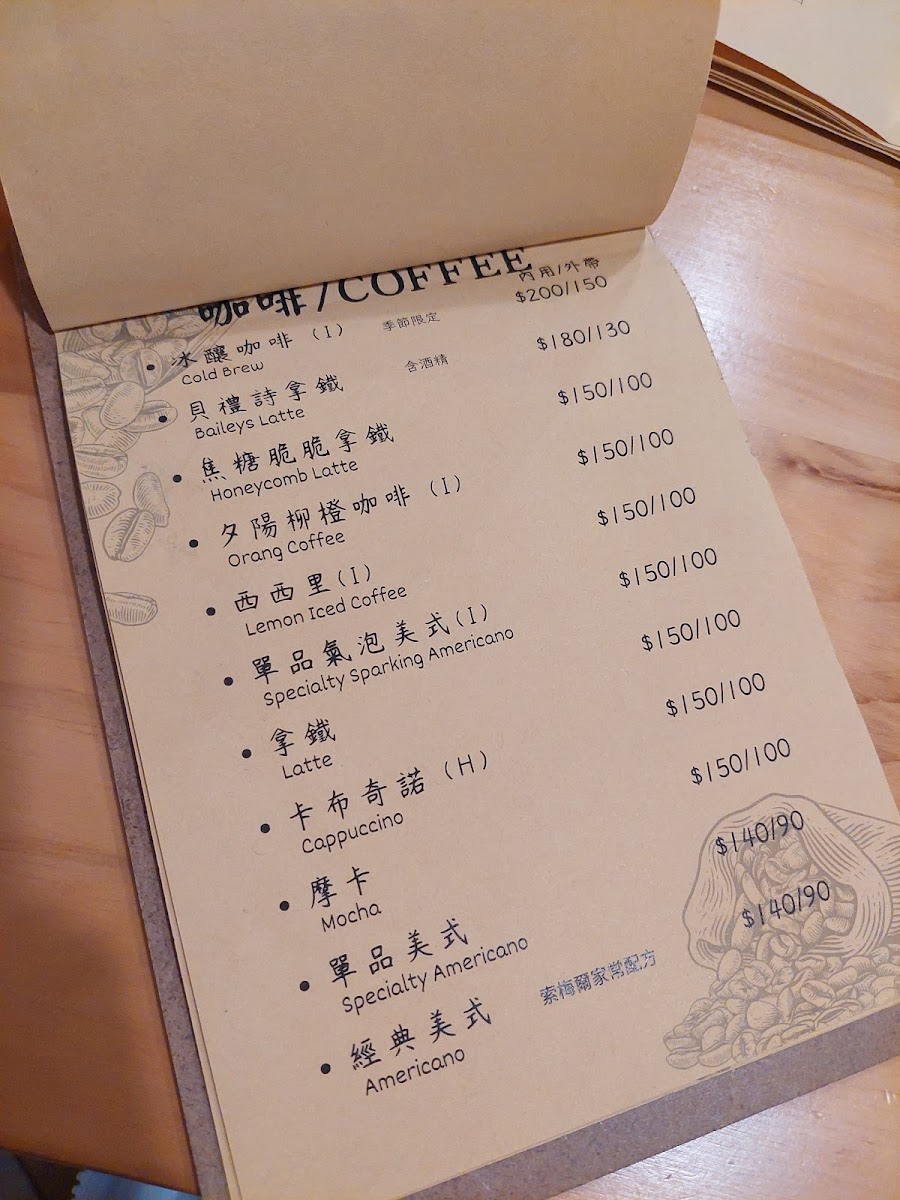 咖啡/COFFEE
內用/外帶
冰釀咖啡 (I) 季節限定 $200/150
Cold Brew
貝禮詩拿鐵 含酒精 $180/130
Baileys Latte
焦糖脆脆拿鐵 $150/100
Honeycomb Latte
夕陽柳橙咖啡 (I) $150/100
Orang Coffee
西西里(I) $150/100
Lemon Iced Coffee
單品氣泡美式(I) $150/100
Specialty Sparking Americano
拿鐵 $150/100
Latte
卡布奇諾 (H) $150/100
Cappuccino
摩卡 $150/100
Mocha
單品美式 $140/90
Specialty Americano
經典美式 索梅爾家常配方 $140/90
Americano